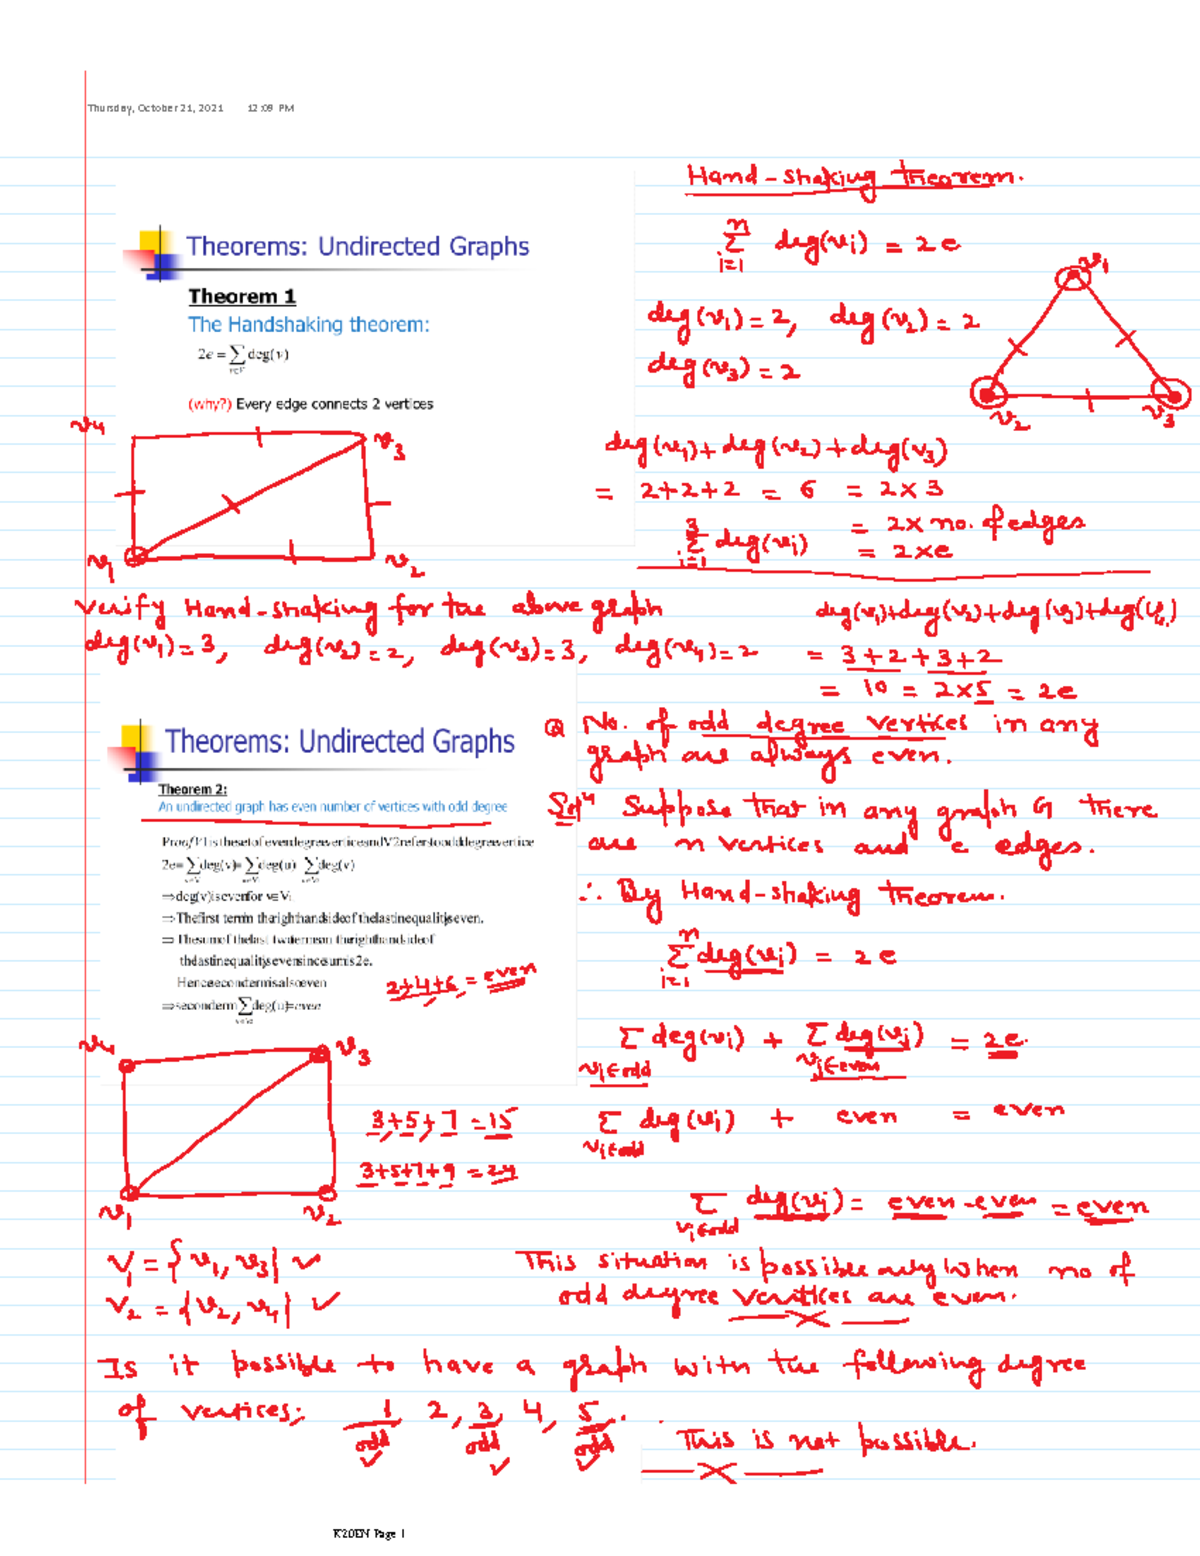 Thursday, October 21, 2021 12:09 PM
Hand-shaking theorem.
Theorems: Undirected Graphs
Theorem 1
The Handshaking theorem:
2e = ∑ deg(v)
v∈V
(why?) Every edge connects 2 vertices
n
∑ deg(vi) = 2e
i=1
deg(v1) = 2, deg(v2) = 2
deg(v3) = 2
v1
v2
v3
deg(v1)+deg(v2)+deg(v3)
= 2+2+2 = 6 = 2×3
= 2× no. of edges
3
∑ deg(vi) = 2×e
i=1
v4
v3
v1
v2
Verify Hand-shaking for the above graph
deg(v1)=3, deg(v2)=2, deg(v3)=3, deg(v4)=2
deg(v1)+deg(v2)+deg(v3)+deg(v4)
= 3+2+3+2
= 10 = 2×5 = 2e
Theorems: Undirected Graphs
Theorem 2:
An undirected graph has even number of vertices with odd degree
Proof V1 is the set of even degree vertices and V2 refers to odd degree vertice
2e= ∑ deg(v)= ∑ deg(u) ∑ deg(v)
⇒ deg(v) is even for v∈V1
⇒ The first term in the right hand side of the last inequality is even.
⇒ The sum of the last two terms on the right hand side of
the last inequality is even since sum is 2e.
Hence second term is also even
⇒ second term ∑ deg(u)=even
2+4+6 = even
v4
v3
v1
v2
3+5+7 = 15
3+5+7+9 = 24
V1 = {v1, v3} ✓
V2 = {v2, v4} ✓
Q No. of odd degree vertices in any
graph are always even.
Solⁿ Suppose that in any graph G there
are n vertices and e edges.
∴ By Hand-shaking theorem.
n
∑ deg(vi) = 2e
i=1
∑ deg(vi) + ∑ deg(vj) = 2e
vi∈odd vj∈even
∑ deg(vi) + even = even
vi∈odd
∑ deg(vi) = even - even = even
vi∈odd
This situation is possible only when no of
odd degree vertices are even.
Is it possible to have a graph with the following degree
of vertices; 1 2, 3, 4, 5.
odd odd odd
This is not possible.
K20EN Page 1